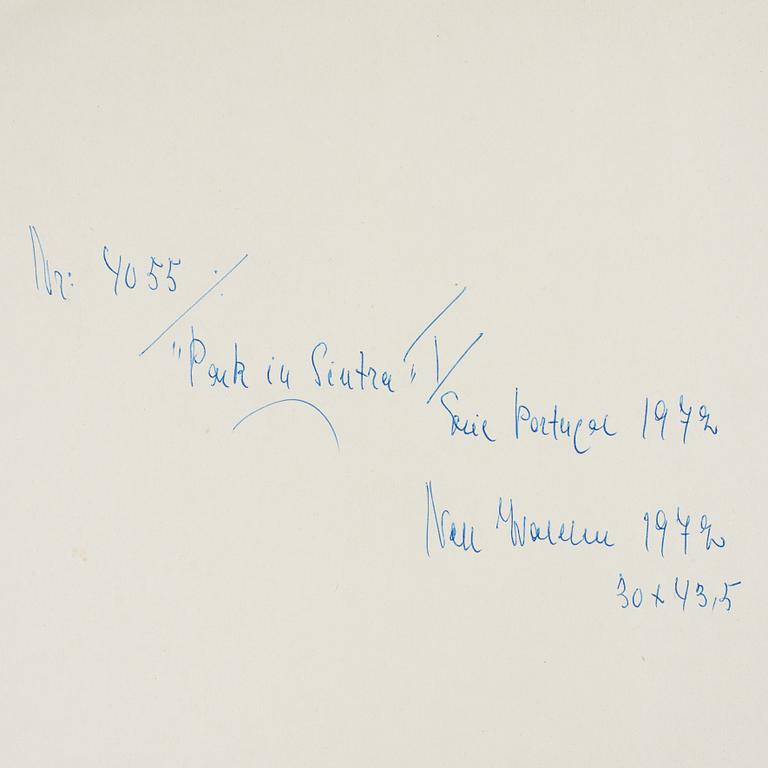 Nr: 4055
"Park in Sintra" I
Serie Portugal 1972
Nell Walden 1972
30 x 43,5